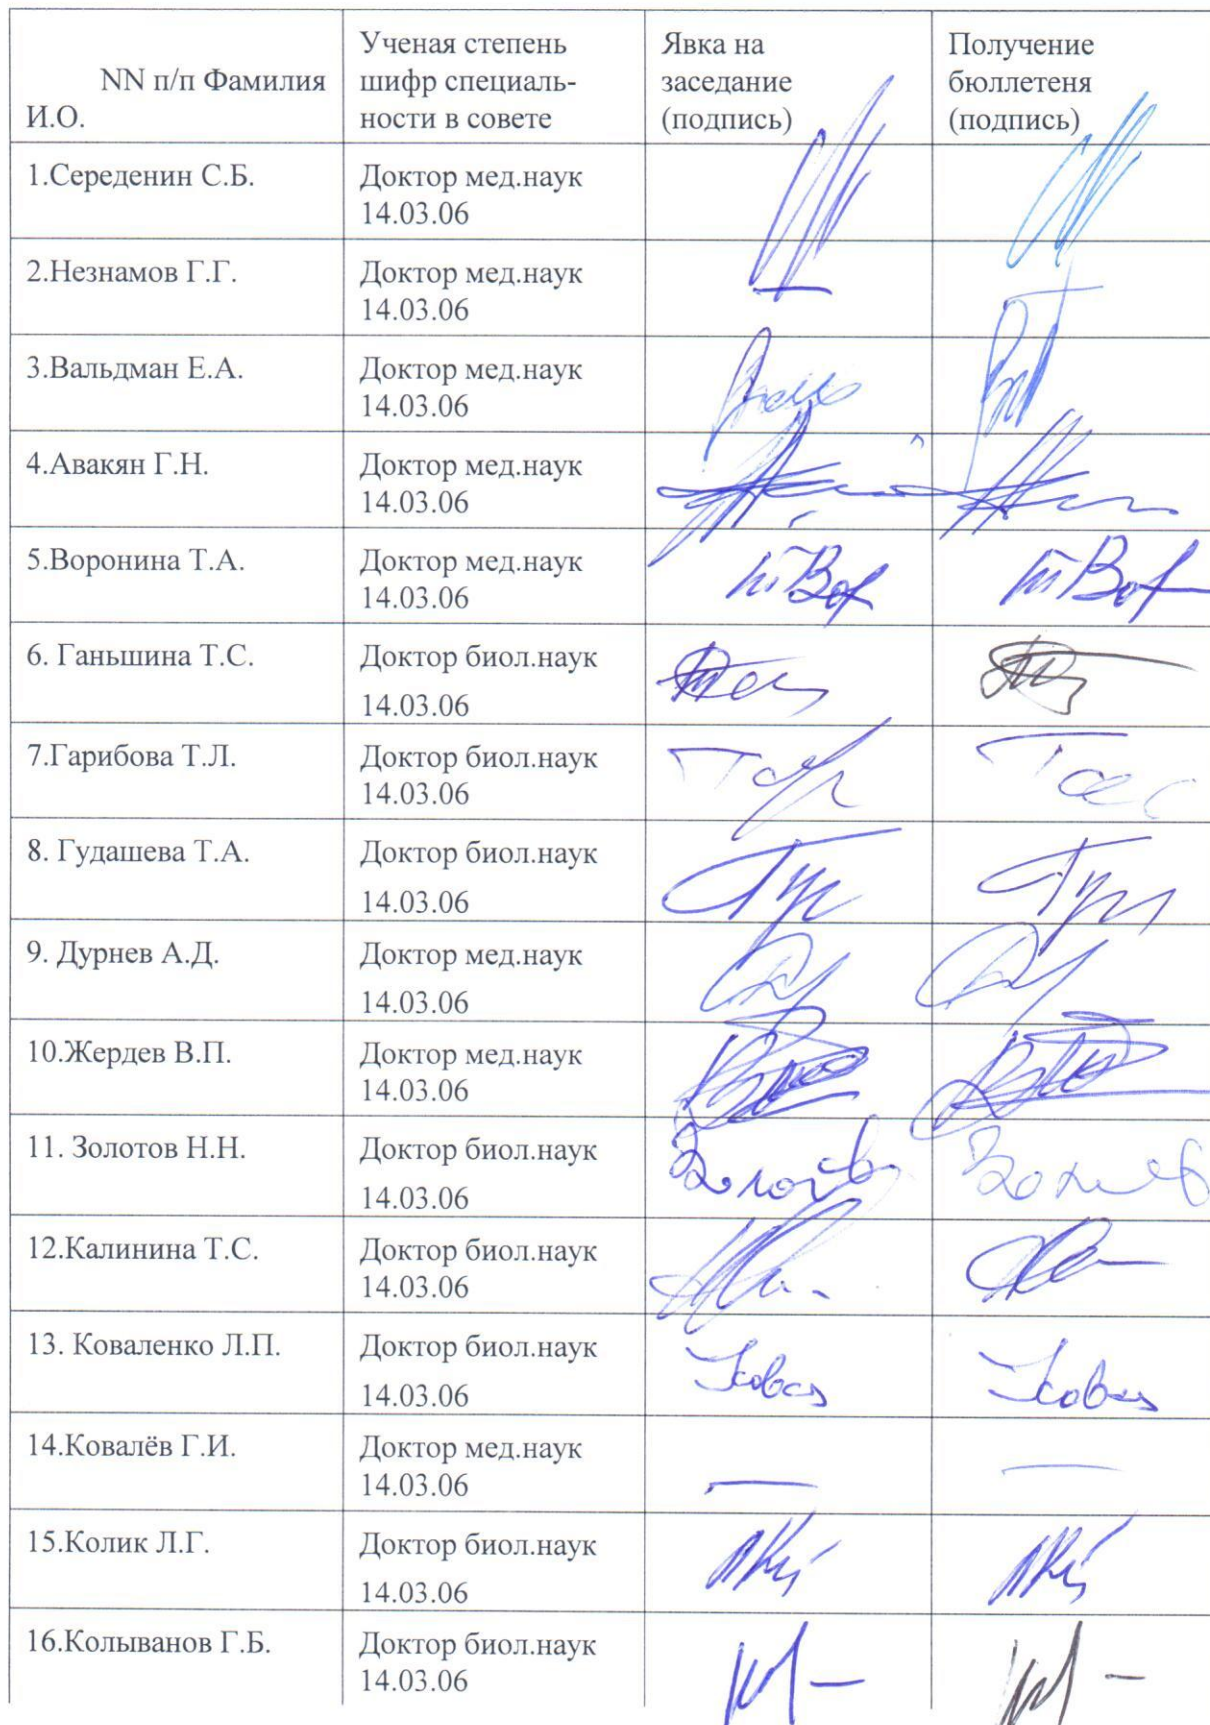 NN п/п Фамилия
И.О.
Ученая степень
шифр специаль-
ности в совете
Явка на
заседание
(подпись)
Получение
бюллетеня
(подпись)
1.Середенин С.Б.
Доктор мед.наук
14.03.06
2.Незнамов Г.Г.
Доктор мед.наук
14.03.06
3.Вальдман Е.А.
Доктор мед.наук
14.03.06
4.Авакян Г.Н.
Доктор мед.наук
14.03.06
5.Воронина Т.А.
Доктор мед.наук
14.03.06
6. Ганьшина Т.С.
Доктор биол.наук
14.03.06
7.Гарибова Т.Л.
Доктор биол.наук
14.03.06
8. Гудашева Т.А.
Доктор биол.наук
14.03.06
9. Дурнев А.Д.
Доктор мед.наук
14.03.06
10.Жердев В.П.
Доктор мед.наук
14.03.06
11. Золотов Н.Н.
Доктор биол.наук
14.03.06
12.Калинина Т.С.
Доктор биол.наук
14.03.06
13. Коваленко Л.П.
Доктор биол.наук
14.03.06
14.Ковалёв Г.И.
Доктор мед.наук
14.03.06
15.Колик Л.Г.
Доктор биол.наук
14.03.06
16.Колыванов Г.Б.
Доктор биол.наук
14.03.06